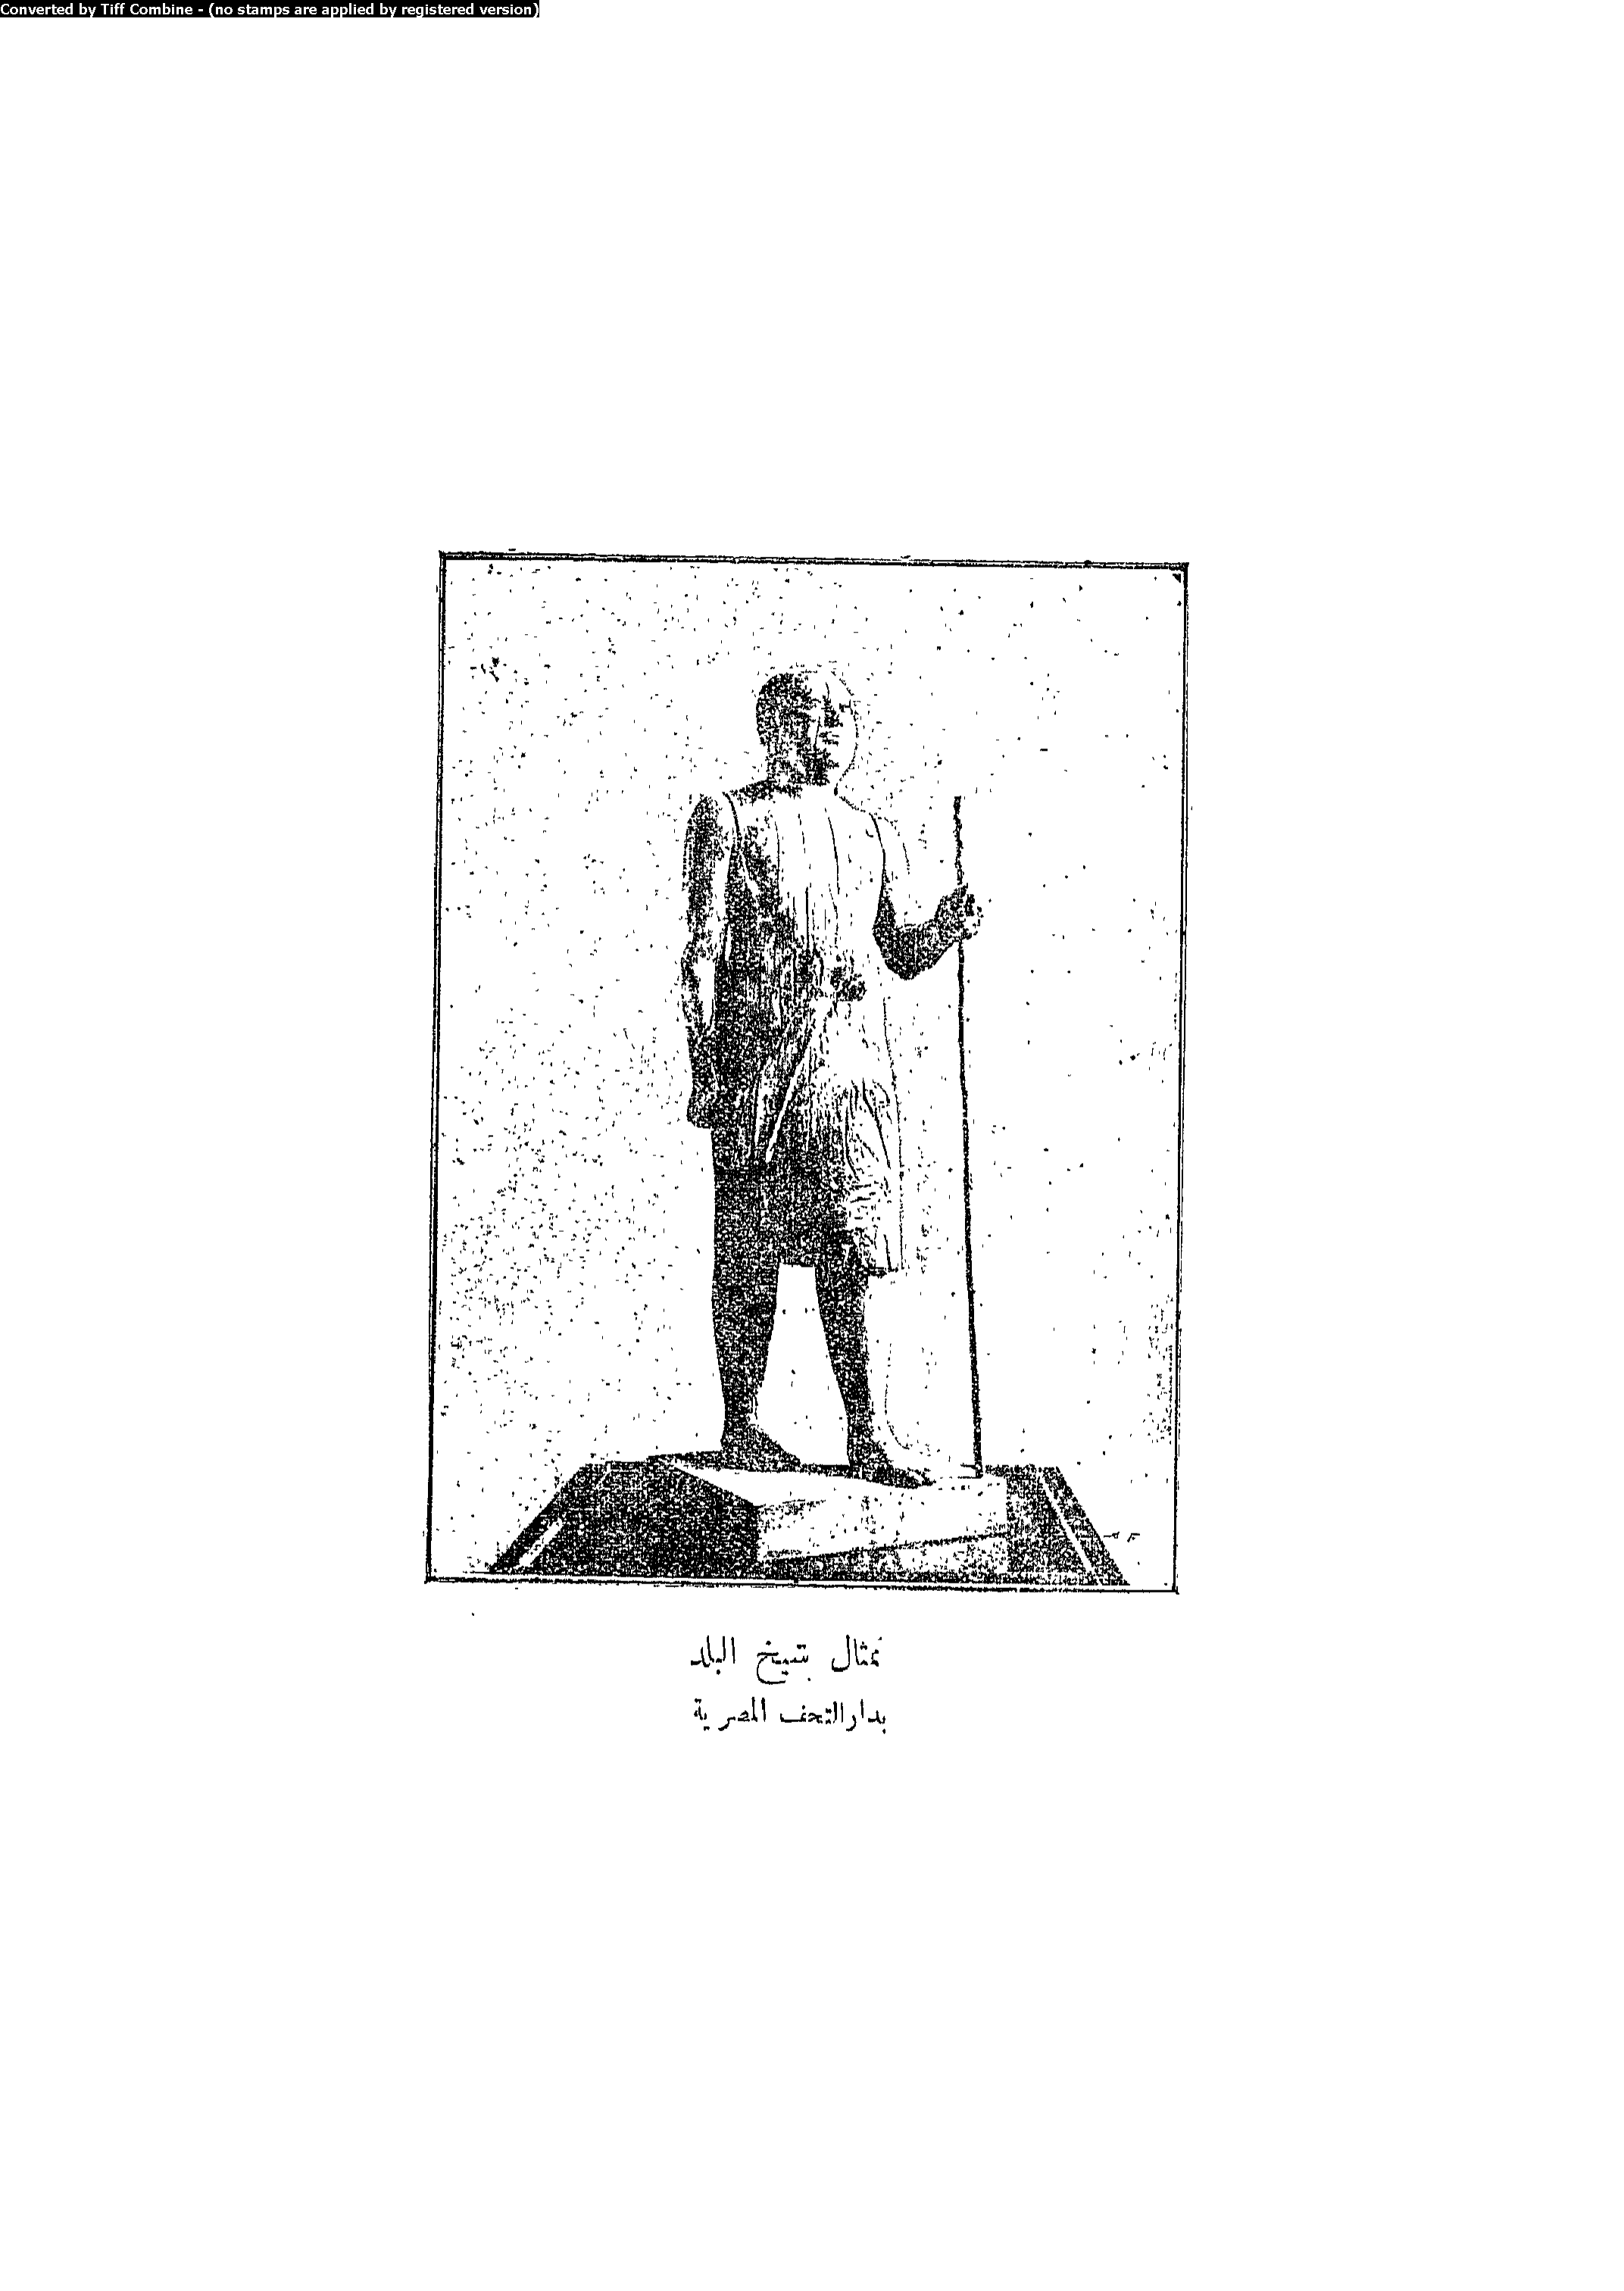 Converted by Tiff Combine - (no stamps are applied by registered version)
تمثال شيخ البلد
بدار التحف المصرية